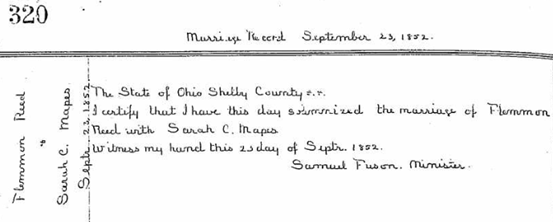 320
Marriage Record September 23, 1852.
Flemmon Reed
"
Sarah C. Mapes
Septr. 23, 1852
The State of Ohio Shelby County s.s.
I certify that I have this day solemnized the marriage of Flemmon
Reed with Sarah C. Mapes
Witness my hand this 23 day of Septr. 1852.
Samuel Fuson. Minister.